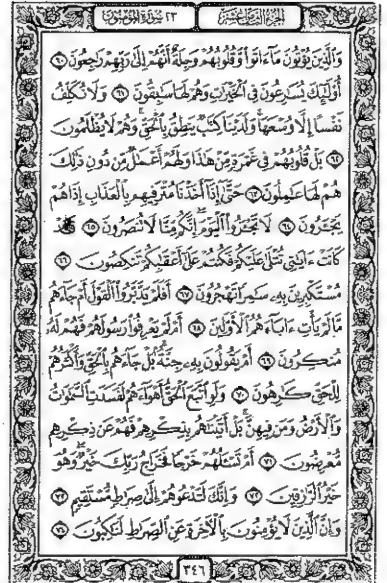 الجزء الثامن عشر ٢٣ سورة المؤمنون
وَٱلَّذِينَ يُؤْتُونَ مَآ ءَاتَوا۟ وَّقُلُوبُهُمْ وَجِلَةٌ أَنَّهُمْ إِلَىٰ رَبِّهِمْ رَٰجِعُونَ ٦٠
أُو۟لَـٰٓئِكَ يُسَـٰرِعُونَ فِى ٱلْخَيْرَٰتِ وَهُمْ لَهَا سَـٰبِقُونَ ٦١ وَلَا نُكَلِّفُ
نَفْسًا إِلَّا وُسْعَهَا ۖ وَلَدَيْنَا كِتَـٰبٌ يَنطِقُ بِٱلْحَقِّ ۚ وَهُمْ لَا يُظْلَمُونَ
٦٢ بَلْ قُلُوبُهُمْ فِى غَمْرَةٍ مِّنْ هَـٰذَا وَلَهُمْ أَعْمَـٰلٌ مِّن دُونِ ذَٰلِكَ
هُمْ لَهَا عَـٰمِلُونَ ٦٣ حَتَّىٰٓ إِذَآ أَخَذْنَا مُتْرَفِيهِم بِٱلْعَذَابِ إِذَا هُمْ
يَجْـَٔرُونَ ٦٤ لَا تَجْـَٔرُوا۟ ٱلْيَوْمَ ۖ إِنَّكُم مِّنَّا لَا تُنصَرُونَ ٦٥ قَدْ
كَانَتْ ءَايَـٰتِى تُتْلَىٰ عَلَيْكُمْ فَكُنتُمْ عَلَىٰٓ أَعْقَـٰبِكُمْ تَنكِصُونَ ٦٦
مُسْتَكْبِرِينَ بِهِۦ سَـٰمِرًا تَهْجُرُونَ ٦٧ أَفَلَمْ يَدَّبَّرُوا۟ ٱلْقَوْلَ أَمْ جَآءَهُم
مَّا لَمْ يَأْتِ ءَابَآءَهُمُ ٱلْأَوَّلِينَ ٦٨ أَمْ لَمْ يَعْرِفُوا۟ رَسُولَهُمْ فَهُمْ لَهُۥ
مُنكِرُونَ ٦٩ أَمْ يَقُولُونَ بِهِۦ جِنَّةٌۢ ۚ بَلْ جَآءَهُم بِٱلْحَقِّ وَأَكْثَرُهُمْ
لِلْحَقِّ كَـٰرِهُونَ ٧٠ وَلَوِ ٱتَّبَعَ ٱلْحَقُّ أَهْوَآءَهُمْ لَفَسَدَتِ ٱلسَّمَـٰوَٰتُ
وَٱلْأَرْضُ وَمَن فِيهِنَّ ۚ بَلْ أَتَيْنَـٰهُم بِذِكْرِهِمْ فَهُمْ عَن ذِكْرِهِم
مُّعْرِضُونَ ٧١ أَمْ تَسْـَٔلُهُمْ خَرْجًا فَخَرَاجُ رَبِّكَ خَيْرٌ ۖ وَهُوَ
خَيْرُ ٱلرَّٰزِقِينَ ٧٢ وَإِنَّكَ لَتَدْعُوهُمْ إِلَىٰ صِرَٰطٍ مُّسْتَقِيمٍ ٧٣
وَإِنَّ ٱلَّذِينَ لَا يُؤْمِنُونَ بِٱلْـَٔاخِرَةِ عَنِ ٱلصِّرَٰطِ لَنَـٰكِبُونَ ٧٤
٣٤٦